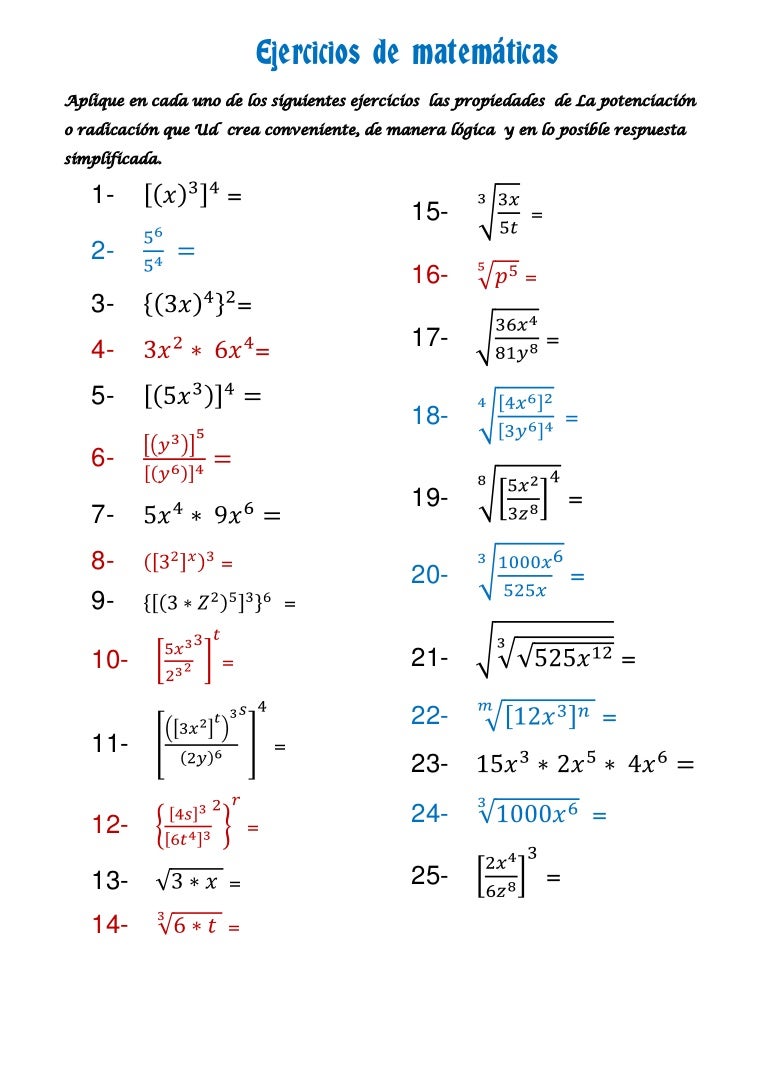 Ejercicios de matemáticas
Aplique en cada uno de los siguientes ejercicios las propiedades de La potenciación
o radicación que Ud crea conveniente, de manera lógica y en lo posible respuesta
simplificada.
1- [(x)³]⁴ =
2- 5⁶/5⁴ =
3- {(3x)⁴}²=
4- 3x² * 6x⁴=
5- [(5x³)]⁴ =
6- [(y³)]⁵/[(y⁶)]⁴ =
7- 5x⁴ * 9x⁶ =
8- ([3²]ˣ)³ =
9- {[(3 * Z²)⁵]³}⁶ =
10- [5x^3^3/2^3^2]^t =
11- [([3x²]^t)^3^s/(2y)⁶]⁴ =
12- {[4s]^3^2/[6t⁴]³}^r =
13- √(3 * x) =
14- ∛(6 * t) =
15- ∛(3x/5t) =
16- ⁵√(p⁵) =
17- √(36x⁴/81y⁸) =
18- ∜([4x⁶]²/[3y⁶]⁴) =
19- ⁸√([5x²/3z⁸]⁴) =
20- ∛(1000x⁶/525x) =
21- √(∛(√(√525x¹²))) =
22- ᵐ√([12x³]ⁿ) =
23- 15x³ * 2x⁵ * 4x⁶ =
24- ∛(1000x⁶) =
25- [2x⁴/6z⁸]³ =